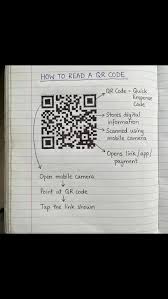 HOW TO READ A QR CODE
QR Code = Quick
Response
Code
Stores digital
information
Scanned using
mobile camera
Opens link/app/
payment
Open mobile camera
Point at QR code
Tap the link shown